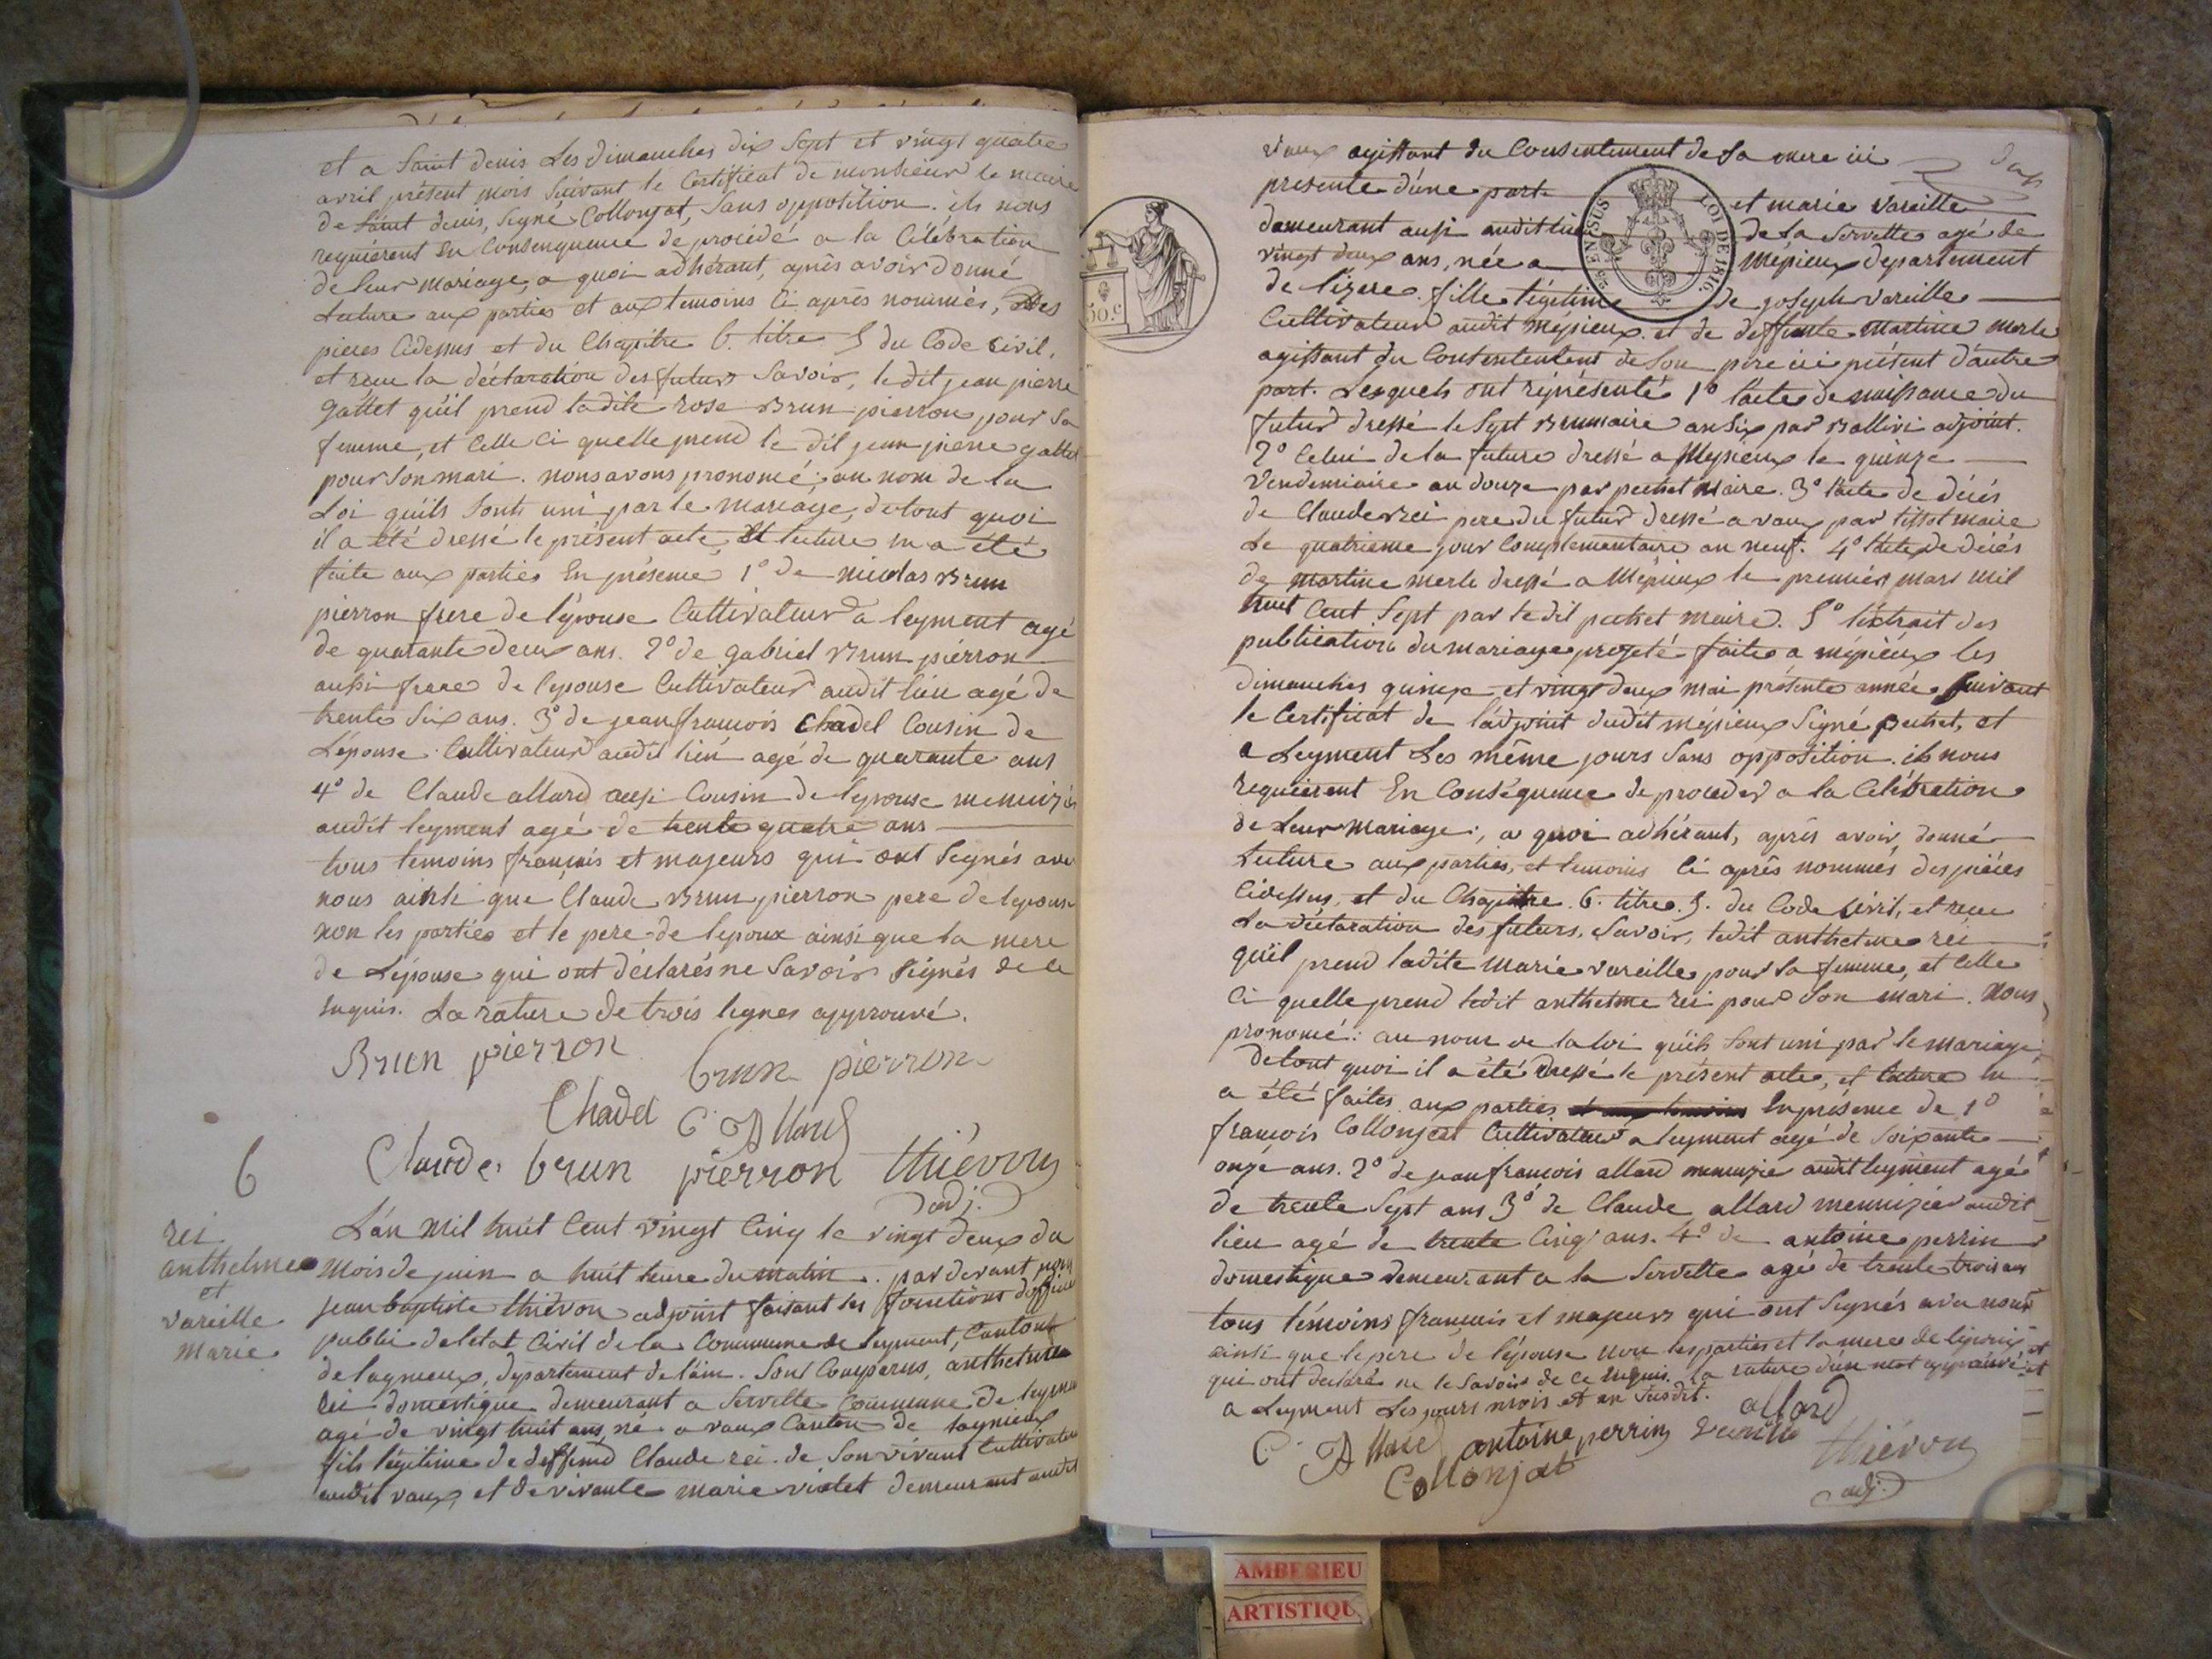 et a Saint denis Les Dimanches dix Sept et vingt quatre
avril présent mois Suivant le Certificat de monsieur le maire
de Saint denis, Signé Collonjat, Sans opposition. ils nous
requiérent En Consenquence de procédé a la Célébration
de leur mariage, a quoi adhérant, après avoir donné
Lecture aux parties et aux temoins Ci après nommés, Des
pieces Cidessus et du Chapitre 6. titre 5 du Code Civil,
et reçu la déclaration des futurs Savoir, le dit jean pierre
gattet qu'il prend ladite rose Brun pierron pour Sa
femme, et Celle Ci quelle prend le dit jean pierre gattet
pour Son mari. nous avons pronomcé; au nom de la
Loi qu'ils Sont uni par le mariage, de tout quoi
il a été dressé le présent acte, Et lecture en a été
faite aux parties En présence 1° de nicolas Brun
pierron frere de l'épouse Cultivateur a leyment agé
de quarante deux ans. 2° de gabriel Brun pierron
aussi frere de l'epouse Cultivateur audit lieu agé de
trente Six ans. 3° de jean françois Chadel Cousin de
L'épouse Cultivateur audit lieu agé de quarante ans
4° de Claude allard aussi Cousin de l'epouse menuizier
audit leyment agé de trente quatre ans
tous temoins français et majeurs qui ont Signés avec
nous ainsi que Claude Brun pierron pere de lepouse
non les parties et le pere de lepoux ainsi que la mere
de L'épouse qui ont déclarés ne Savoir Signés de ce
enquis. La rature de trois lignes approuvé.
Brun pierron brun pierron
Chadel C. Allard
Claude brun pierron thiévon
adj.
6
rei
anthelme
et
vareille
marie
L'an mil huit Cent vingt Cinq le vingt deux du
mois de juin a huit heure du matin. par devant nous
jean baptiste thiévon adjoint faisant les fonctions d'officier
public de letat Civil de la Commune de leyment, Canton
de lagnieux, departement de l'ain. Sont Comparus, anthelme
rei domestique demeurant a Servette Commune de leyment
agé de vingt huit ans, né a vaux Canton de lagnieux
fils légitime de deffund Claude rei. de Son vivant Cultivateur
audit vaux, et de vivante marie violet demeurant audit
vaux agissant du Consentement de Sa mere ici
presente d'une part et marie vareille
demeurant aussi audit lieu de La Servette agé de
vingt deux ans, née a Mépieux departement
de l'izere. fille légitime de joseph vareille
Cultivateur audit mépieux et de deffunte martine merle
agissant du Consentement de Son pere ici présent d'autre
part. Lesquels ont représenté 1° l'acte de naissance du
futur dressé le Sept Brumaire an Six par Ballivi adjoint.
2° Celui de la future dressé a Mepieux le quinze
Vendemiaire an douze par pechet Maire. 3° l'acte de décés
de Claude rei pere du futur dressé a vaux par tissot maire
Le quatrieme jour Complementaire an neuf. 4° l'acte de décés
de martine merle dressé a Mépieux le premier mars mil
huit Cent Sept par ledit pechet maire. 5° l'extrait des
publications du mariage projeté faite a mépiéux les
dimanches quinze et vingt deux mai présente année, Suivant
le Certificat de l'adjoint dudit mépieux Signé pechet, et
a Leyment Les même jours Sans opposition. ils nous
requiérent En Conséquence de proceder a la Célébration
de Leur Mariage; a quoi adhérant, aprés avoir donné
Lecture aux parties, et temoins Ci aprés nommés des piéces
Cidessus, et du Chapitre 6. titre 5. du Code Civil, et recu
La déclaration des futurs, Savoir, ledit anthelme rei
qu'il prend ladite Marie vareille pour Sa femme, et Celle
Ci quelle prend ledit anthelme rei pour Son mari. Nous
pronomcé: au nom de la loi qu'ils Sont uni par le mariage
de tout quoi il a été Dressé le présent acte, et lecture en
a été faites aux parties et aux temoins En présence de 1°
françois Collonjat Cultivateur a leyment agé de Soixante
onze ans. 2° de jean françois allard menuzie audit leyment agé
de trente Sept ans 3° de Claude allard menuizier audit
lieu agé de trente Cinq ans. 4° de antoine perrin
domestique demeurant a la Servette agé de trente trois ans
tous témoins français et majeurs qui ont Signés avec nous
ainsi que le pere de l'épouse non les parties et la mere de l'epoux
qui ont declaré ne le Savoir de ce enquis. la rature d'un mot approuvé
a Leyment Les jours mois et an Susdit.
allard
C. Allard antoine perrin Vareille thiévon
Collonjat adj.
25 EN SUS
LOI DE 1816.
50.c
AMBERIEU
ARTISTIQU